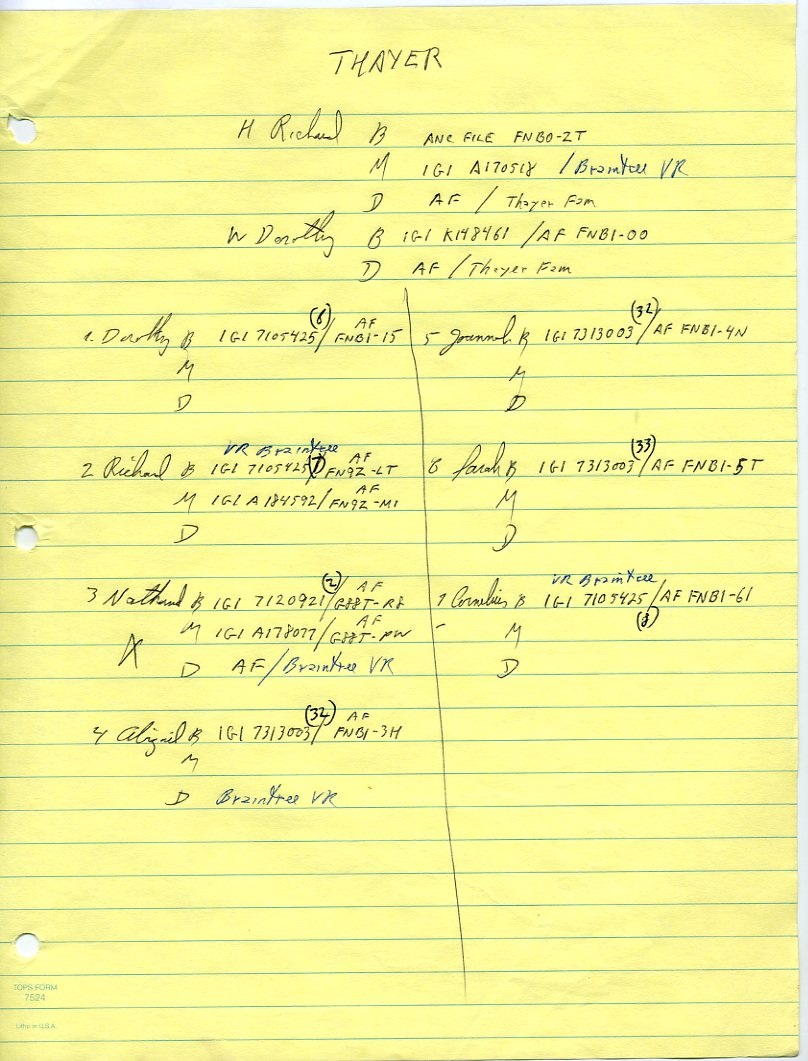 THAYER
H Richard B ANC FILE FNB0-2T
M IGI A170518 / Braintree VR
D AF / Thayer Fam
W Dorothy B IGI K148461 / AF FNB1-00
D AF / Thayer Fam
1. Dorothy B IGI 7105425 (6) / AF FNB1-15
M
D
2 Richard B VR Braintree
IGI 7105425 (7) AF FN9Z-LT
M IGI A184592 / AF FN9Z-M1
D
3 Nathaniel B IGI 7120921 (2) / AF G88T-R8
X M IGI A178077 / AF G88T-PW
D AF / Braintree VR
4 Abigail B IGI 7313003 (32) / AF FNB1-3H
M
D Braintree VR
5 Joannah B IGI 7313003 (32) / AF FNB1-4N
M
D
6 Sarah B IGI 7313003 (33) / AF FNB1-5T
M
D
VR Braintree
7 Cornelius B IGI 7105425 / AF FNB1-61
M (8)
D
TOPS FORM
7524
Litho in U.S.A.